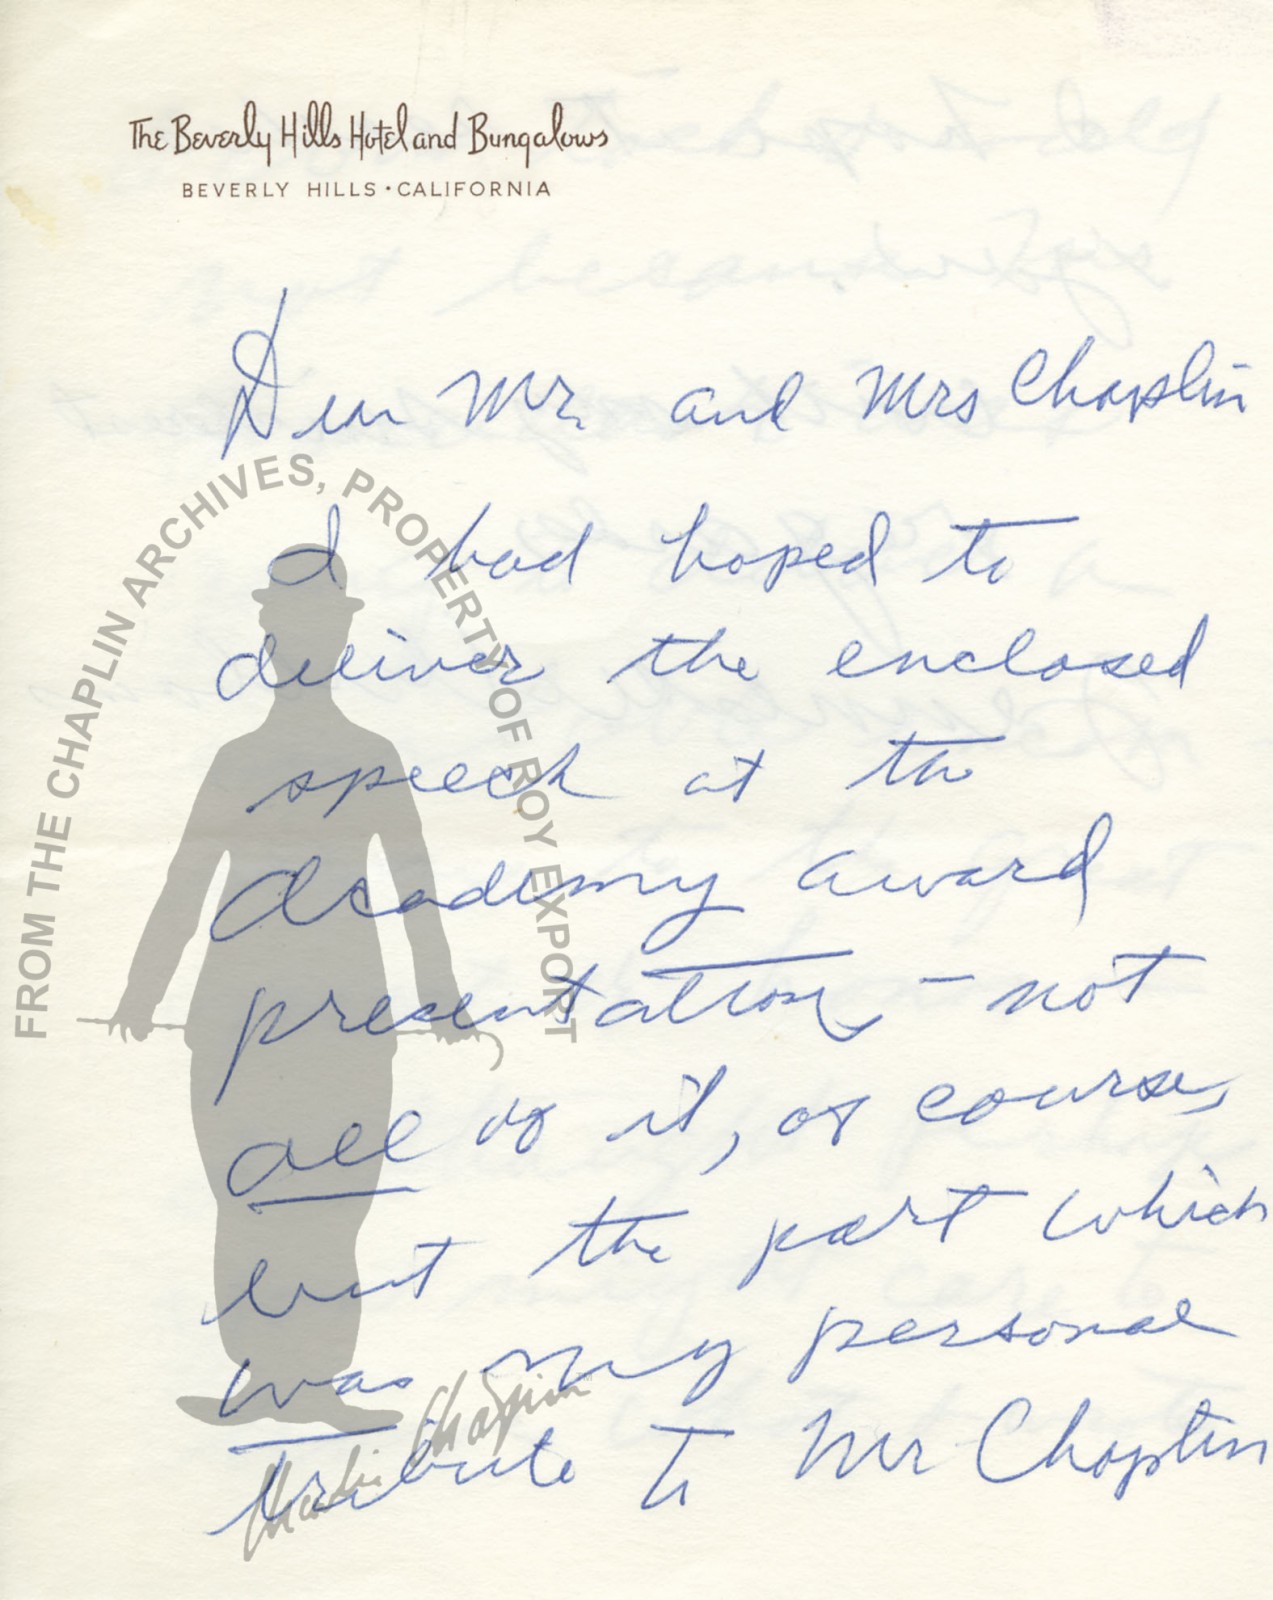 The Beverly Hills Hotel and Bungalows
BEVERLY HILLS • CALIFORNIA
Dear Mr. and Mrs Chaplin
I had hoped to
deliver the enclosed
speech at the
Academy award
presentation, - not
all of it, of course,
but the part which
was my personal
tribute to Mr Chaplin
FROM THE CHAPLIN ARCHIVES, PROPERTY OF ROY EXPORT
Charlie Chaplin